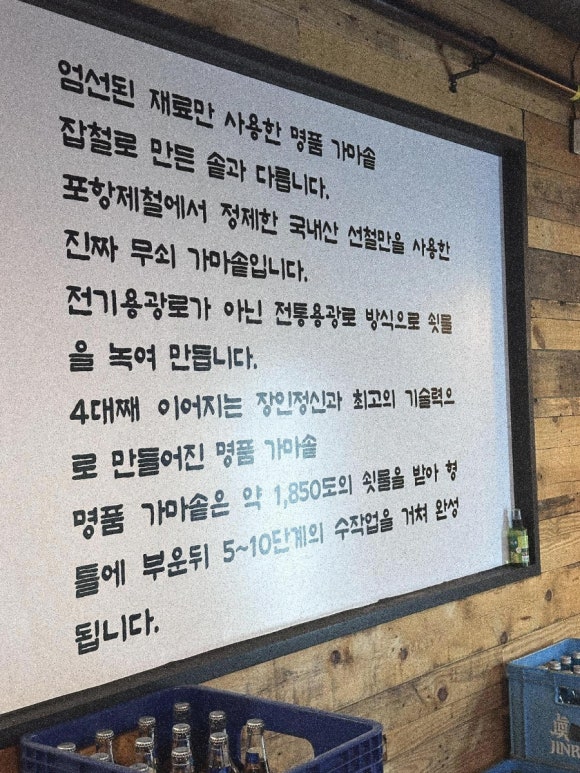 엄선된 재료만 사용한 명품 가마솥
잡철로 만든 솥과 다릅니다.
포항제철에서 정제한 국내산 선철만을 사용한
진짜 무쇠 가마솥입니다.
전기용광로가 아닌 전통용광로 방식으로 쇳물
을 녹여 만듭니다.
4대째 이어지는 장인정신과 최고의 기술력으
로 만들어진 명품 가마솥
명품 가마솥은 약 1,850도의 쇳물을 받아 형
틀에 부운뒤 5~10단계의 수작업을 거쳐 완성
됩니다.
眞
JINR